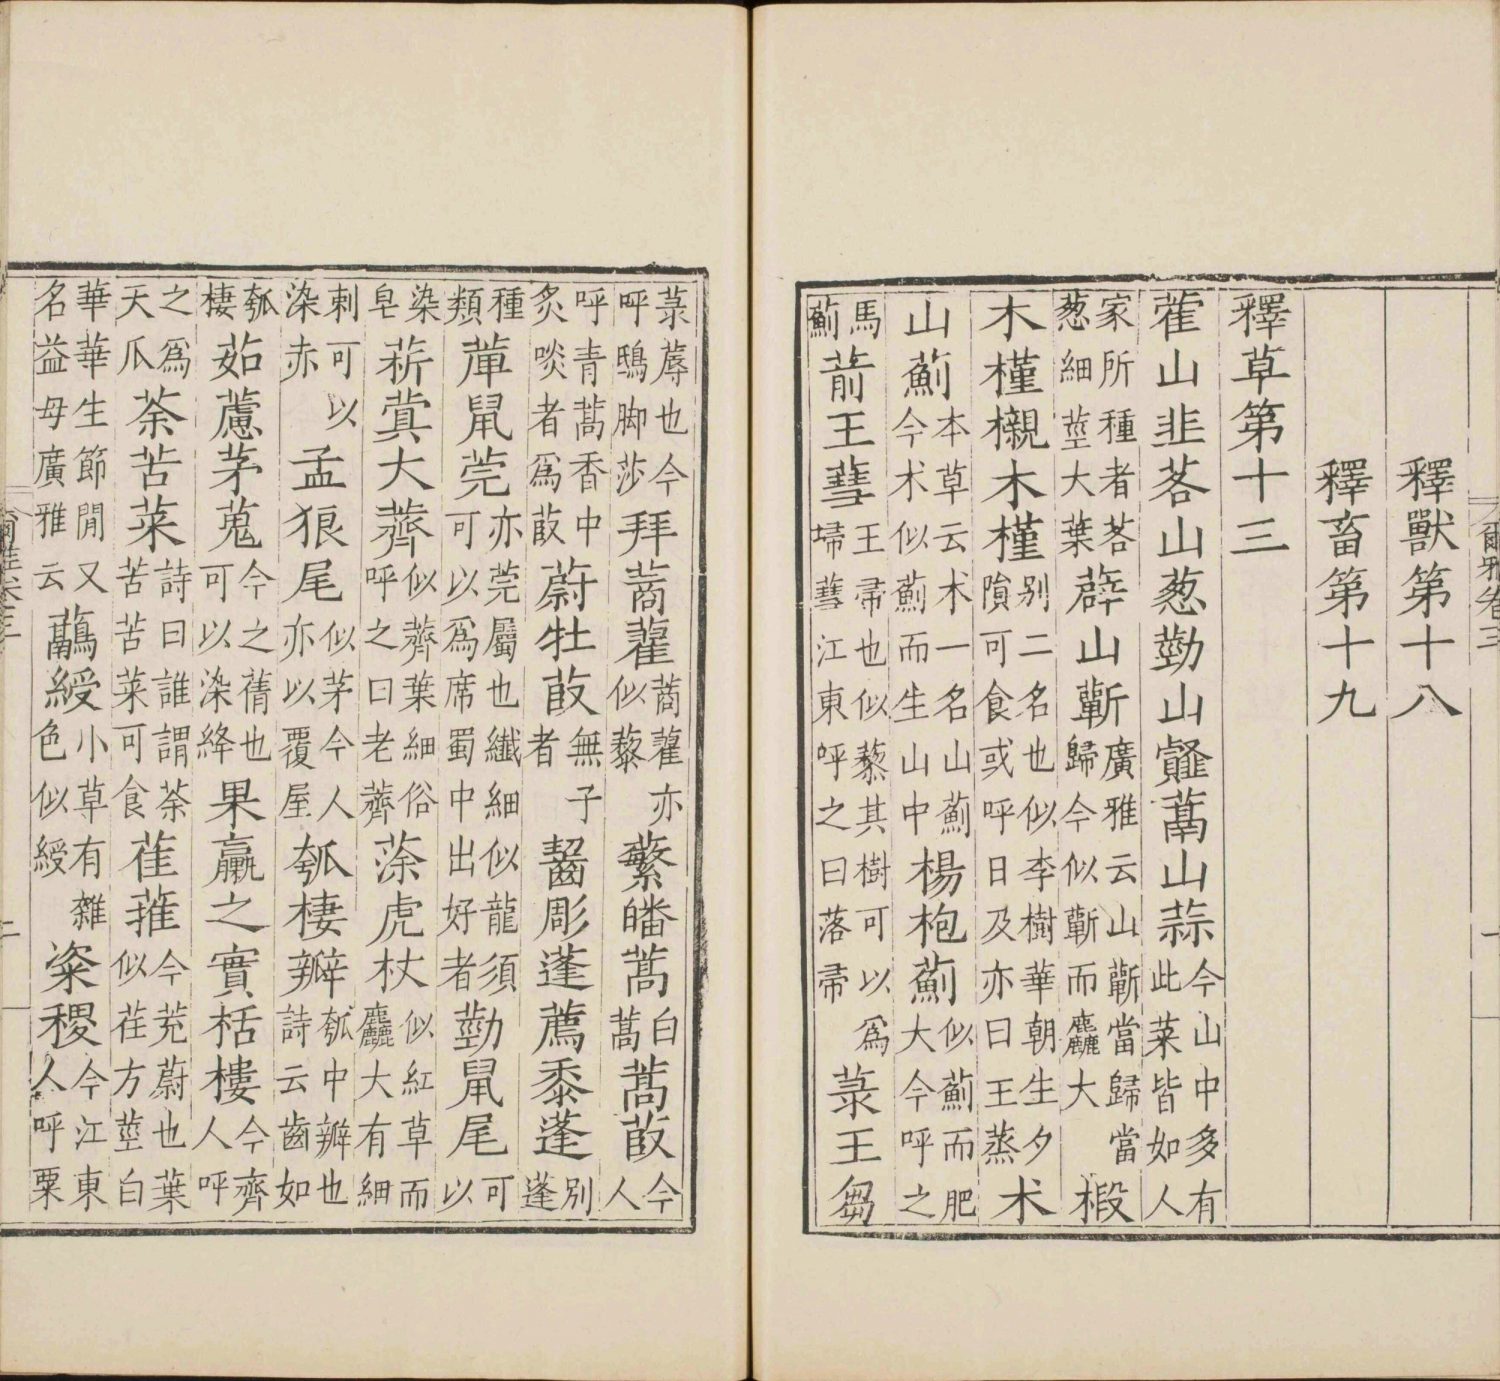 爾雅卷三 一
釋獸第十八
釋畜第十九
釋草第十三
藿山韭茖山葱葝山䪥蒚山蒜今山中多有此菜皆如人
家所種者茖葱細莖大葉薜山蘄廣雅云山蘄當歸當歸今似蘄而麤大椴
木槿櫬木槿别二名也似李樹華朝生夕隕可食或呼日及亦曰王蒸术
山薊本草云术一名山薊今术似薊而生山中楊枹薊似薊而肥大今呼之
馬薊葥王彗王帚也似藜其樹可以爲埽彗江東呼之曰落帚菉王芻
菉蓐也今呼鴟脚莎拜蔏藋蔏藋亦似藜蘩皤蒿白蒿蒿菣今人
呼青蒿香中炙啖者爲菣蔚牡菣無子者齧彫蓬薦黍蓬别蓬
種類蓽鼠莞亦莞屬也纖細似龍須可以爲席蜀中出好者葝鼠尾可以
染皂菥蓂大薺似薺葉細俗呼之曰老薺蒤虎杖似紅草而麤大有細
刺可以染赤孟狼尾似茅今人亦以覆屋瓠棲瓣瓠中瓣也詩云齒如
瓠棲茹藘茅蒐今之蒨也可以染絳果臝之實栝樓今齊人呼
之爲天瓜荼苦菜詩曰誰謂荼苦苦菜可食萑蓷今茺蔚也葉似荏方莖白
華華生節閒又名益母廣雅云虉綬小草有雜色似綬粢稷今江東人呼粟